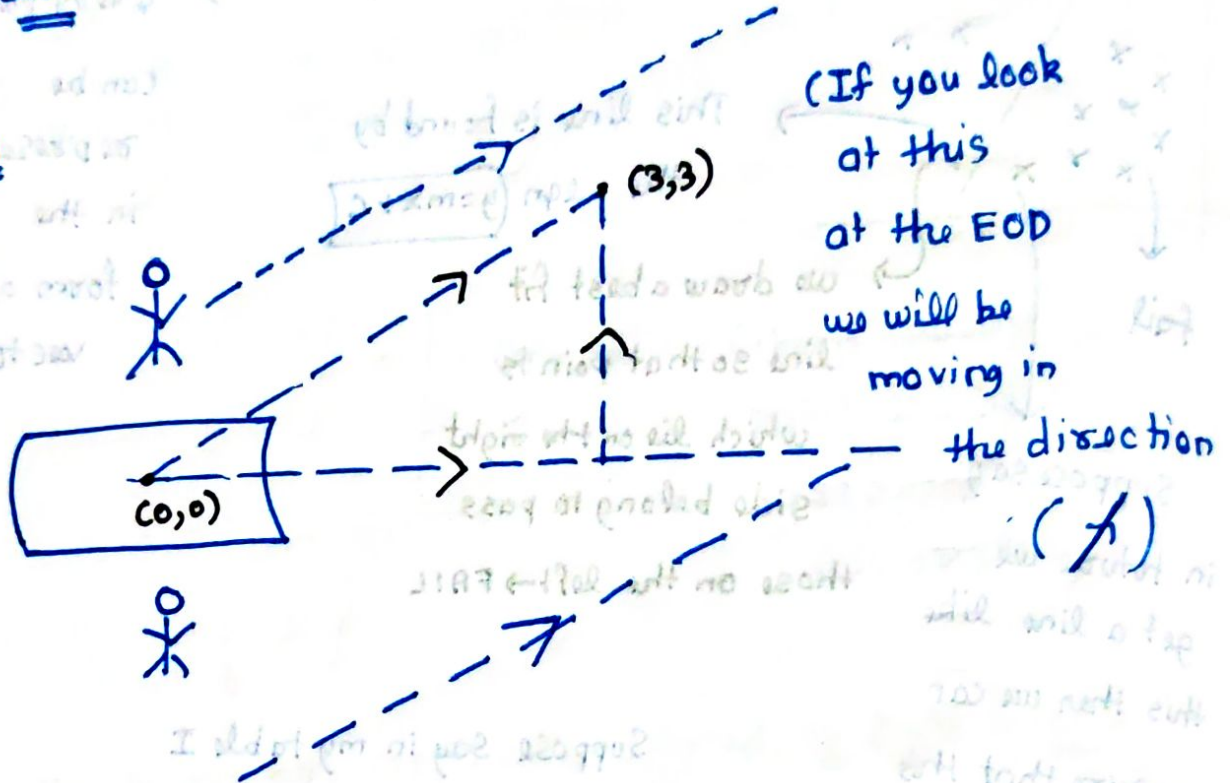 (If you look
at this
(3,3)
at the EOD
we will be
moving in
the direction
(0,0)